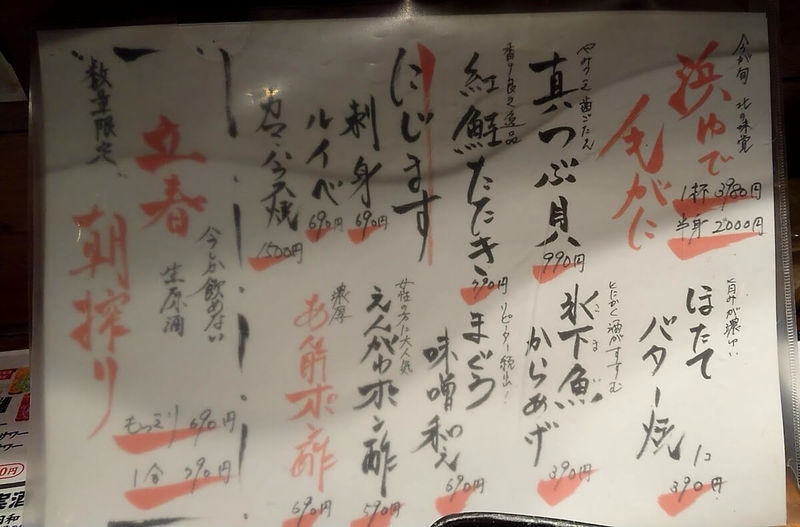 今が旬 北の味覚
浜ゆで
毛がに
1杯 3980円
半身 2000円
旨みが濃ゆい
ほたて
バター焼
1コ
390円
やみつき歯ごたえ
真つぶ貝
990円
とにかく酒がすすむ
氷下魚
こまい
からあげ
390円
香り良き逸品
紅鮭たたき
790円
リピーター続出!
まぐろ
味噌和え
690円
にじます
刺身
690円
ルイベ
690円
カマ
焼
1500円
女性の方に大人気
えんがわポン酢
590円
濃厚
あん肝ポン酢
690円
数量限定
立春
朝搾り
今しか飲めない
生原酒
もっきり 690円
1合 790円